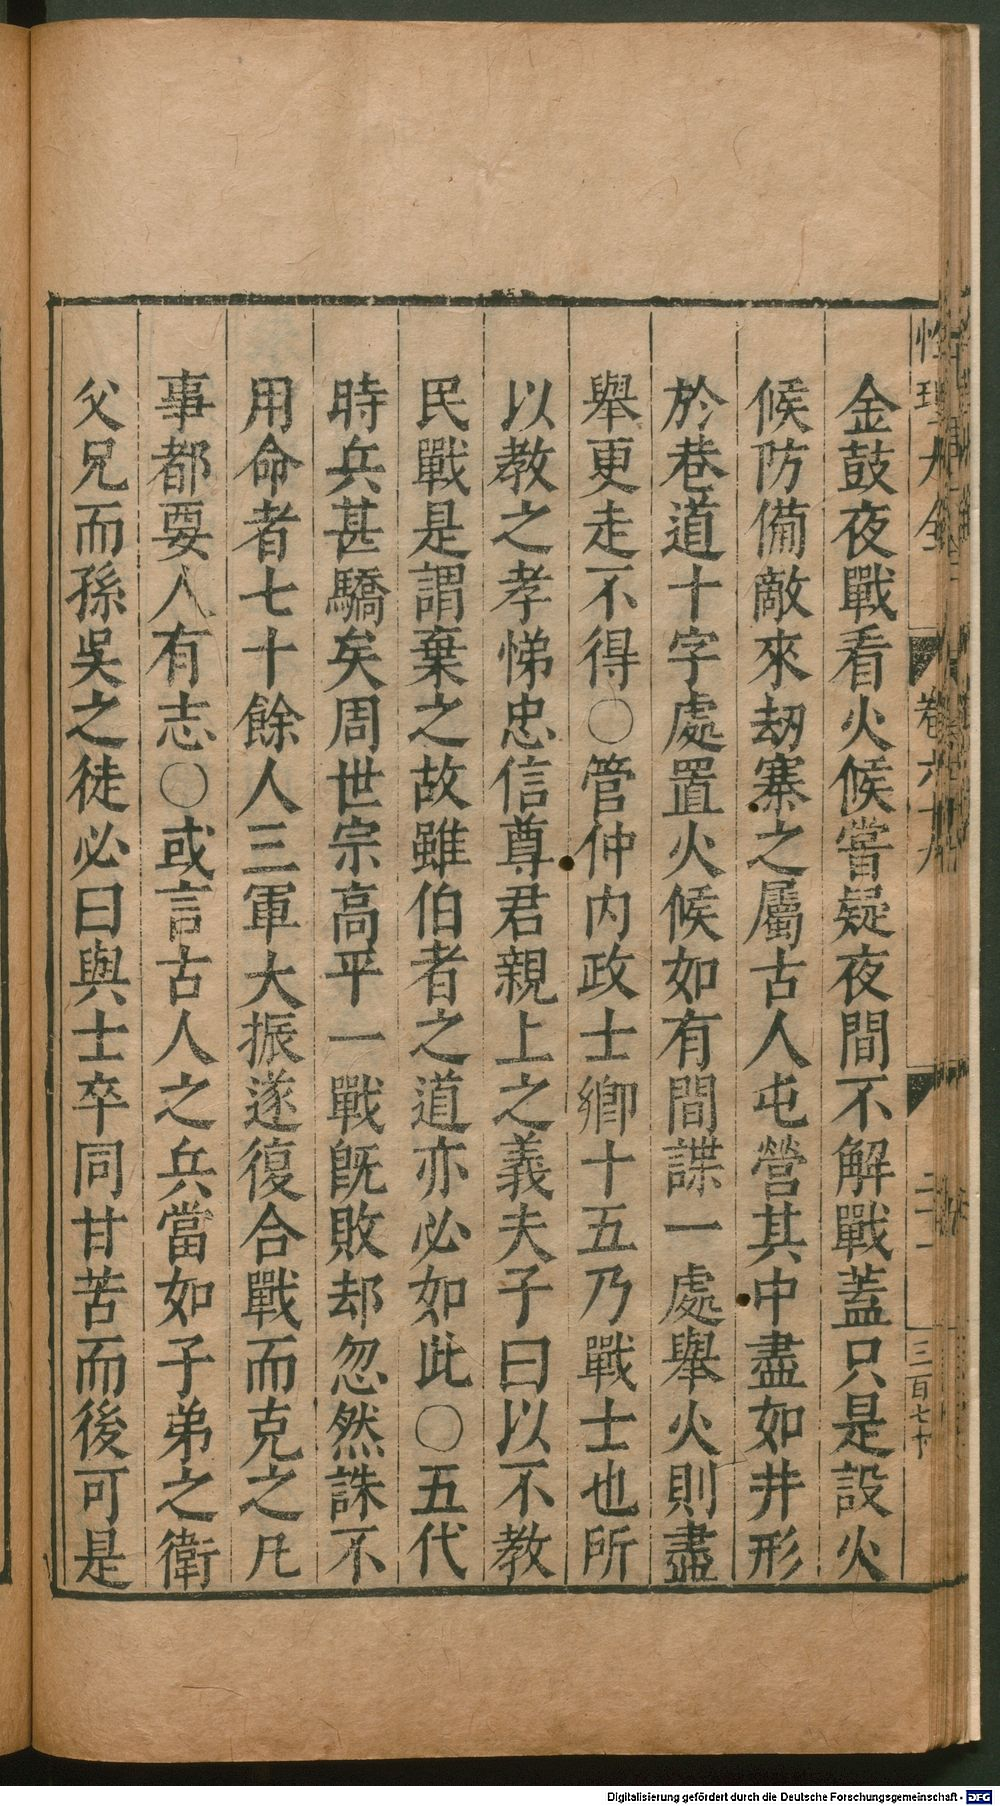 性理大全 卷六十九 二十一 三百七十
金鼓夜戰看火候嘗疑夜間不解戰蓋只是設火
候防備敵來劫寨之屬古人屯營其中盡如井形
於巷道十字處置火候如有間諜一處舉火則盡
舉更走不得○管仲內政士鄉十五乃戰士也所
以教之孝悌忠信尊君親上之義夫子曰以不教
民戰是謂棄之故雖伯者之道亦必如此○五代
時兵甚驕矣周世宗高平一戰旣敗却忽然誅不
用命者七十餘人三軍大振遂復合戰而克之凡
事都要人有志○或言古人之兵當如子弟之衛
父兄而孫吳之徒必曰與士卒同甘苦而後可是
Digitalisierung gefördert durch die Deutsche Forschungsgemeinschaft - DFG